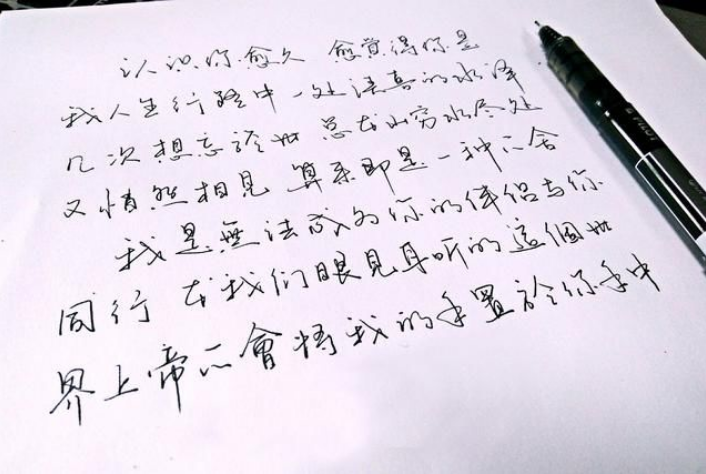 认识你愈久 愈觉得你是
我人生行路中一处清喜的水泽
几次想忘於世 总在山穷水尽处
又悄然相见 算来即是一种不舍
我是無法成为你的伴侣与你
同行 在我们眼見耳听的這個世
界上帝不會将我的手置於你手中
PILOT